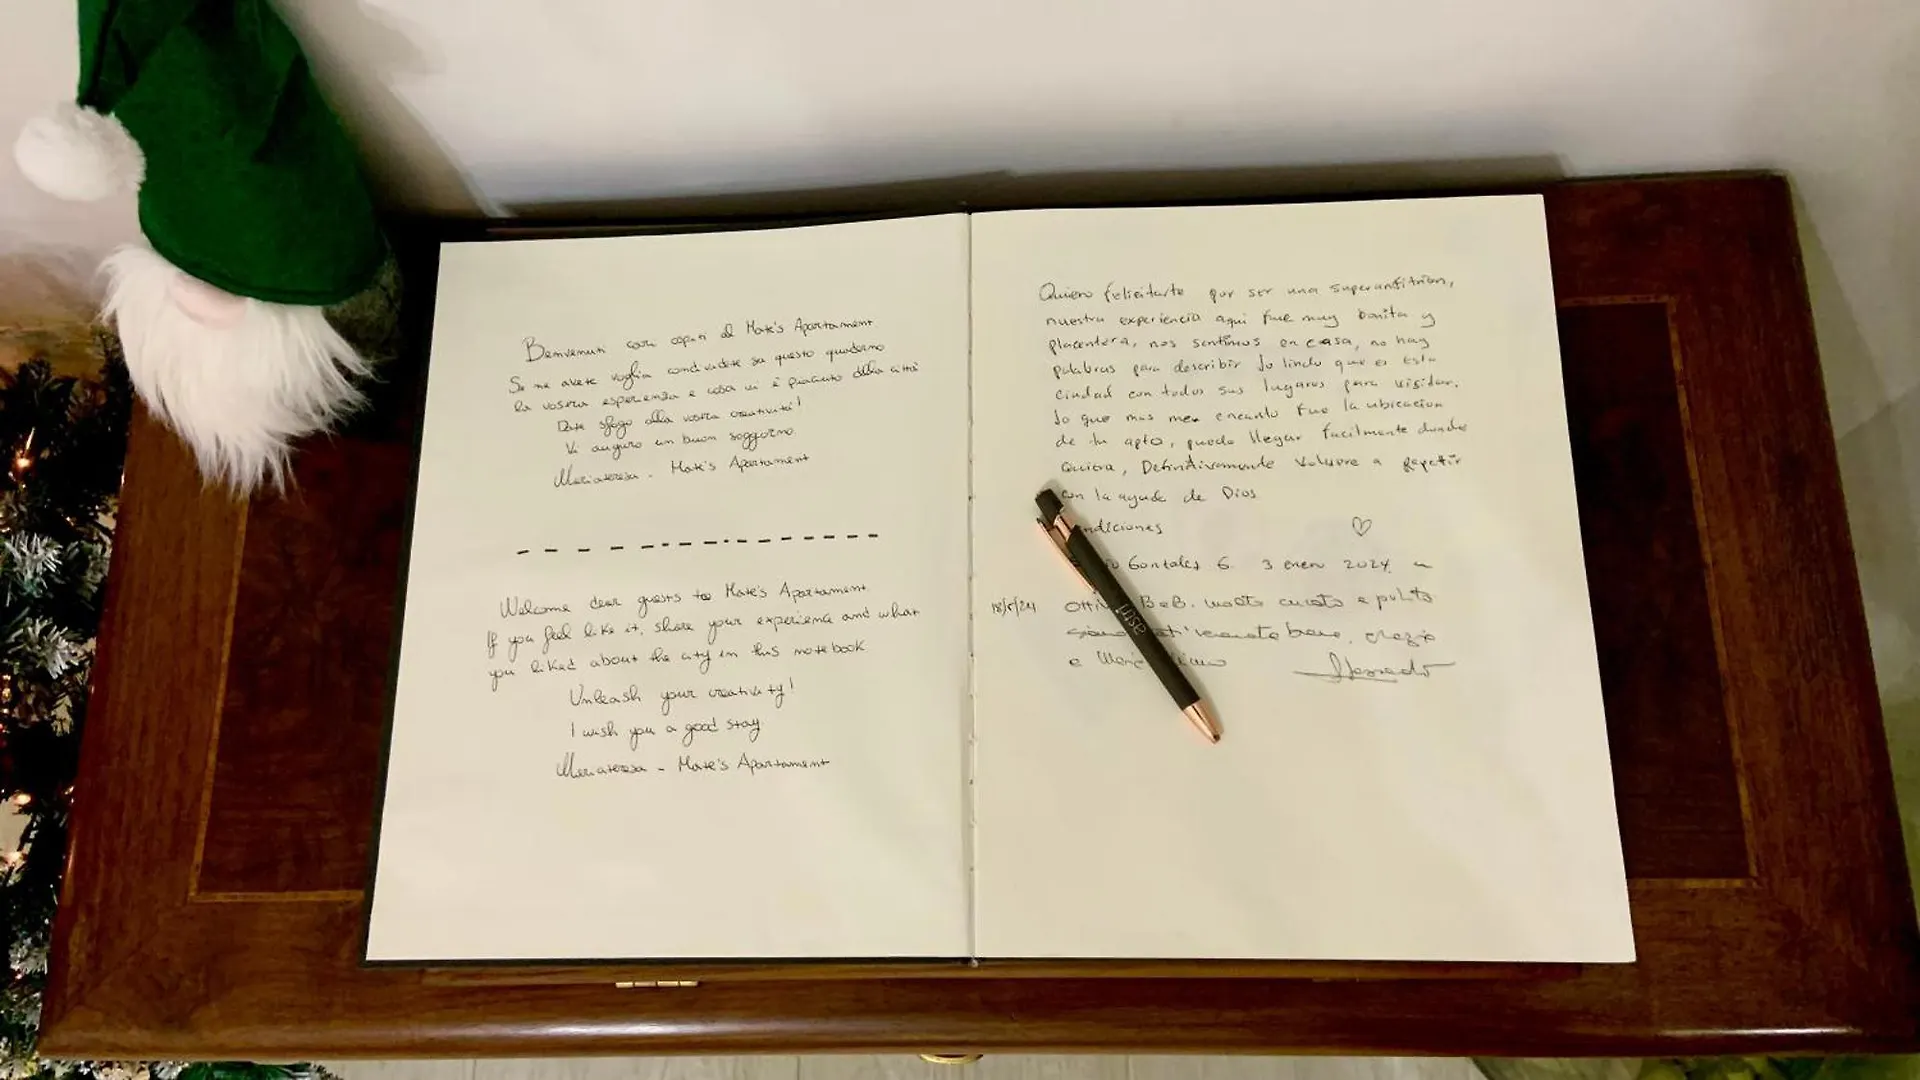 Benvenuti cari ospiti al Mate's Apartament
Se ne avete voglia condividete su questo quaderno
la vostra esperienza e cosa vi è piaciuto della città
Date sfogo alla vostra creatività!
Vi auguro un buon soggiorno.
Mariateresa - Mate's Apartament
Welcome dear guests to Mate's Apartament.
If you feel like it, share your experience and what
you liked about the city in this notebook
Unleash your creativity!
I wish you a good stay.
Mariateresa - Mate's Apartament
Quiero felicitarte por ser una superanfitrion,
nuestra experiencia aqui fue muy bonita y
placentera, nos sentimos en casa, no hay
palabras para describir lo lindo que es esta
ciudad con todos sus lugares para visitar.
lo que mas me encanto fue la ubicacion
de tu apto, puedo llegar facilmente donde
quiera, Definitivamente volvere a repetir
con la ayuda de Dios
ndiciones
Gonzales G. 3 enero 2024
18/5/24 B&B. molto curato e pulito
bene, grazie
e